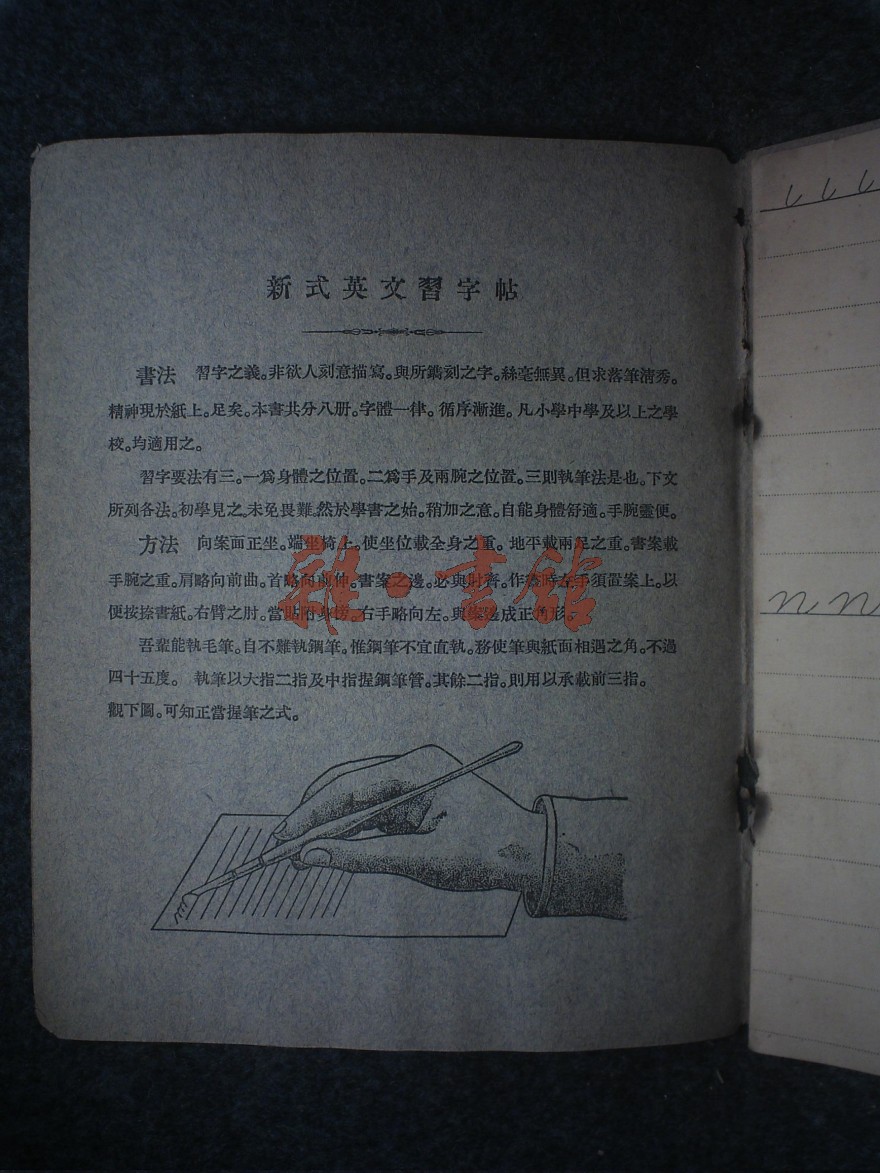 新式英文習字帖
書法 習字之義。非欲人刻意描寫。與所鐫刻之字。絲毫無異。但求落筆清秀。
精神現於紙上。足矣。本書共分八册。字體一律。循序漸進。凡小學中學及以上之學
校。均適用之。
習字要法有三。一爲身體之位置。二爲手及兩腕之位置。三則執筆法是也。下文
所列各法。初學見之。未免畏難。然於學書之始。稍加之意。自能身體舒適。手腕靈便。
方法 向案面正坐。端坐椅上。使坐位載全身之重。地平載兩足之重。書案載
手腕之重。肩略向前曲。首略向前伸。書案之邊。必與肘齊。作書時左手須置案上。以
便按捺書紙。右臂之肘。當貼附身旁。右手略向左。與案邊成正角形。
吾輩能執毛筆。自不難執鋼筆。惟鋼筆不宜直執。務使筆與紙面相遇之角。不過
四十五度。執筆以大指二指及中指握鋼筆管。其餘二指。則用以承載前三指。
觀下圖。可知正當握筆之式。
雜·書館
m
n n